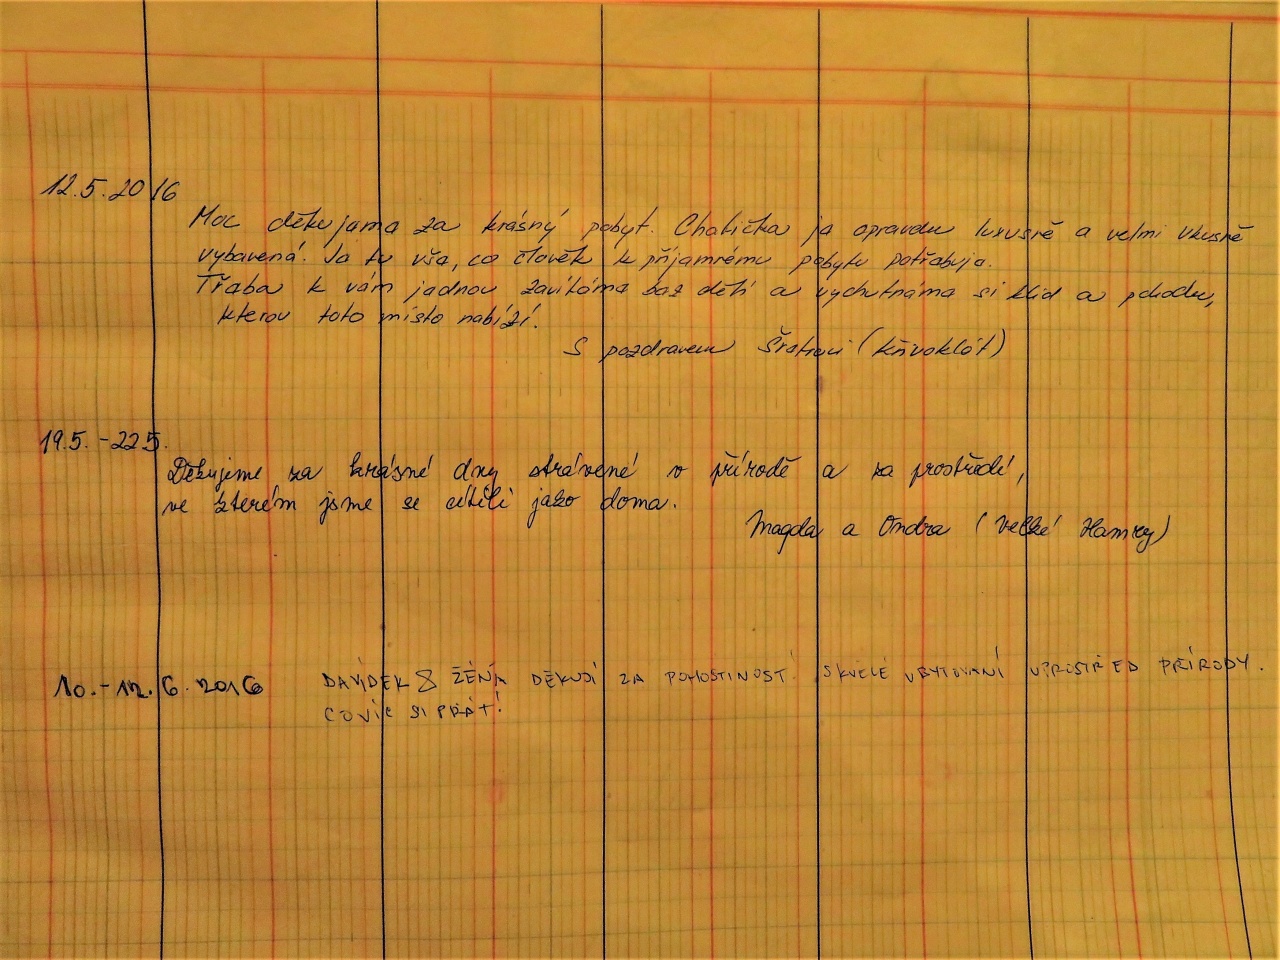 12.5.2016
Moc děkujeme za krásný pobyt. Chatička je opravdu luxusně a velmi vkusně
vybavená. Je tu vše, co člověk k příjemnému pobytu potřebuje.
Třeba k vám jednou zavítáme bez dětí a vychutnáme si klid a pohodu,
kterou toto místo nabízí.
S pozdravem (Křivoklát)
19.5.-22.5.
Děkujeme za krásné dny strávené v přírodě a za prostředí,
ve kterém jsme se cítili jako doma.
Magda a Ondra (Velké Hamry)
10.-12.6.2016 DAVÍDEK & ŽĚŇA DĚKUJÍ ZA POHOSTINOST! SKVĚLÉ UBYTOVÁNÍ UPROSTŘED PŘÍRODY.
CO VÍC SI PŘÁT!